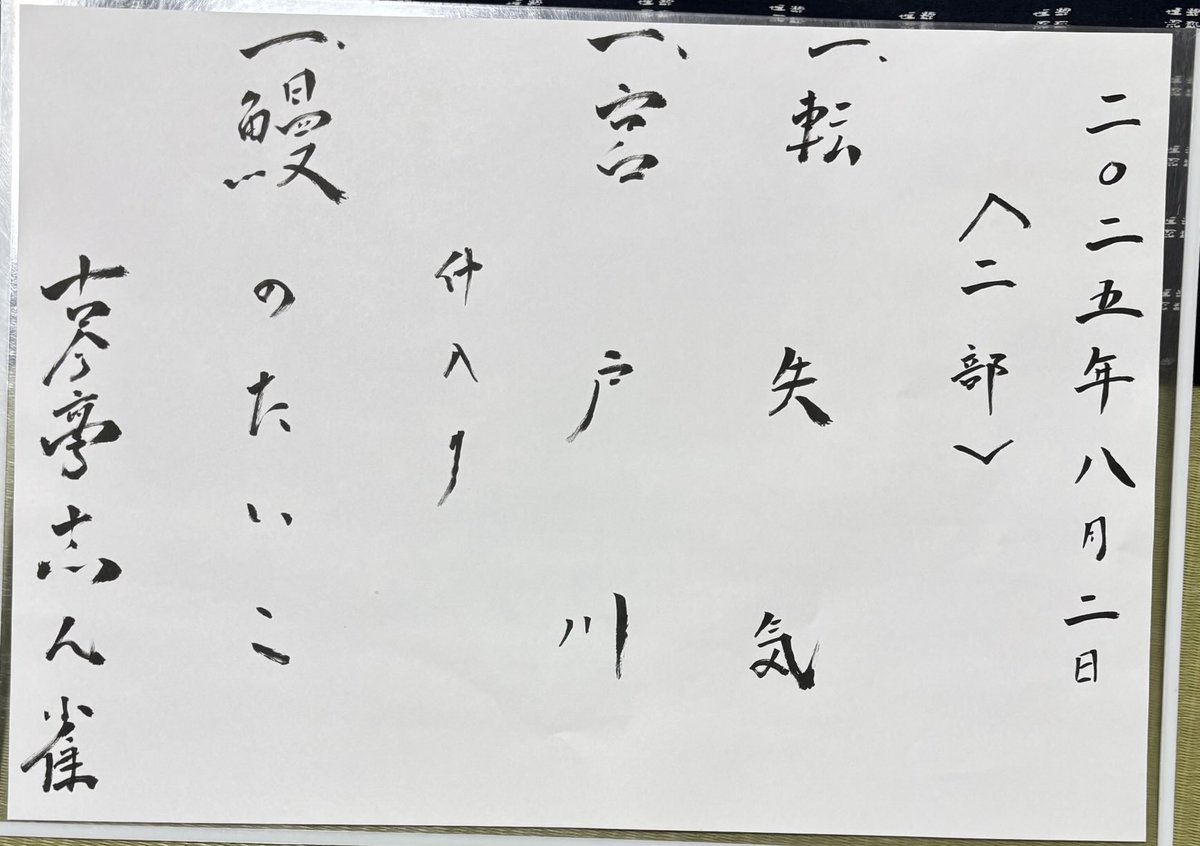 二〇二五年八月二日
〈二部〉
一、転失気
一、宮戸川
仲入り
一、鰻のたいこ
古今亭志ん雀